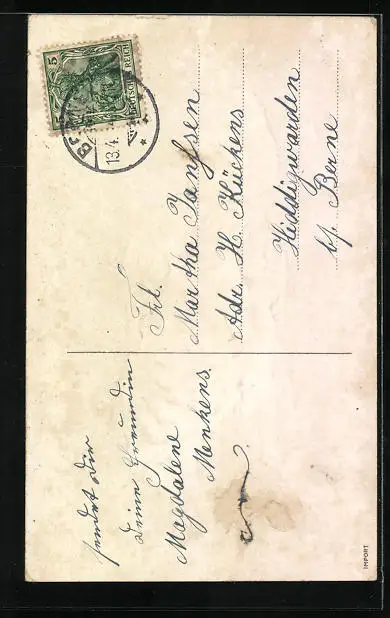 sendet dir
deine Freundin
Magdalene
Menkens.
Frl.
Martha Janßen
Adr. H. Küchens
Hiddigwarden
b/ Berne
5
DEUTSCHES REICH
BR
13.4.
IMPORT